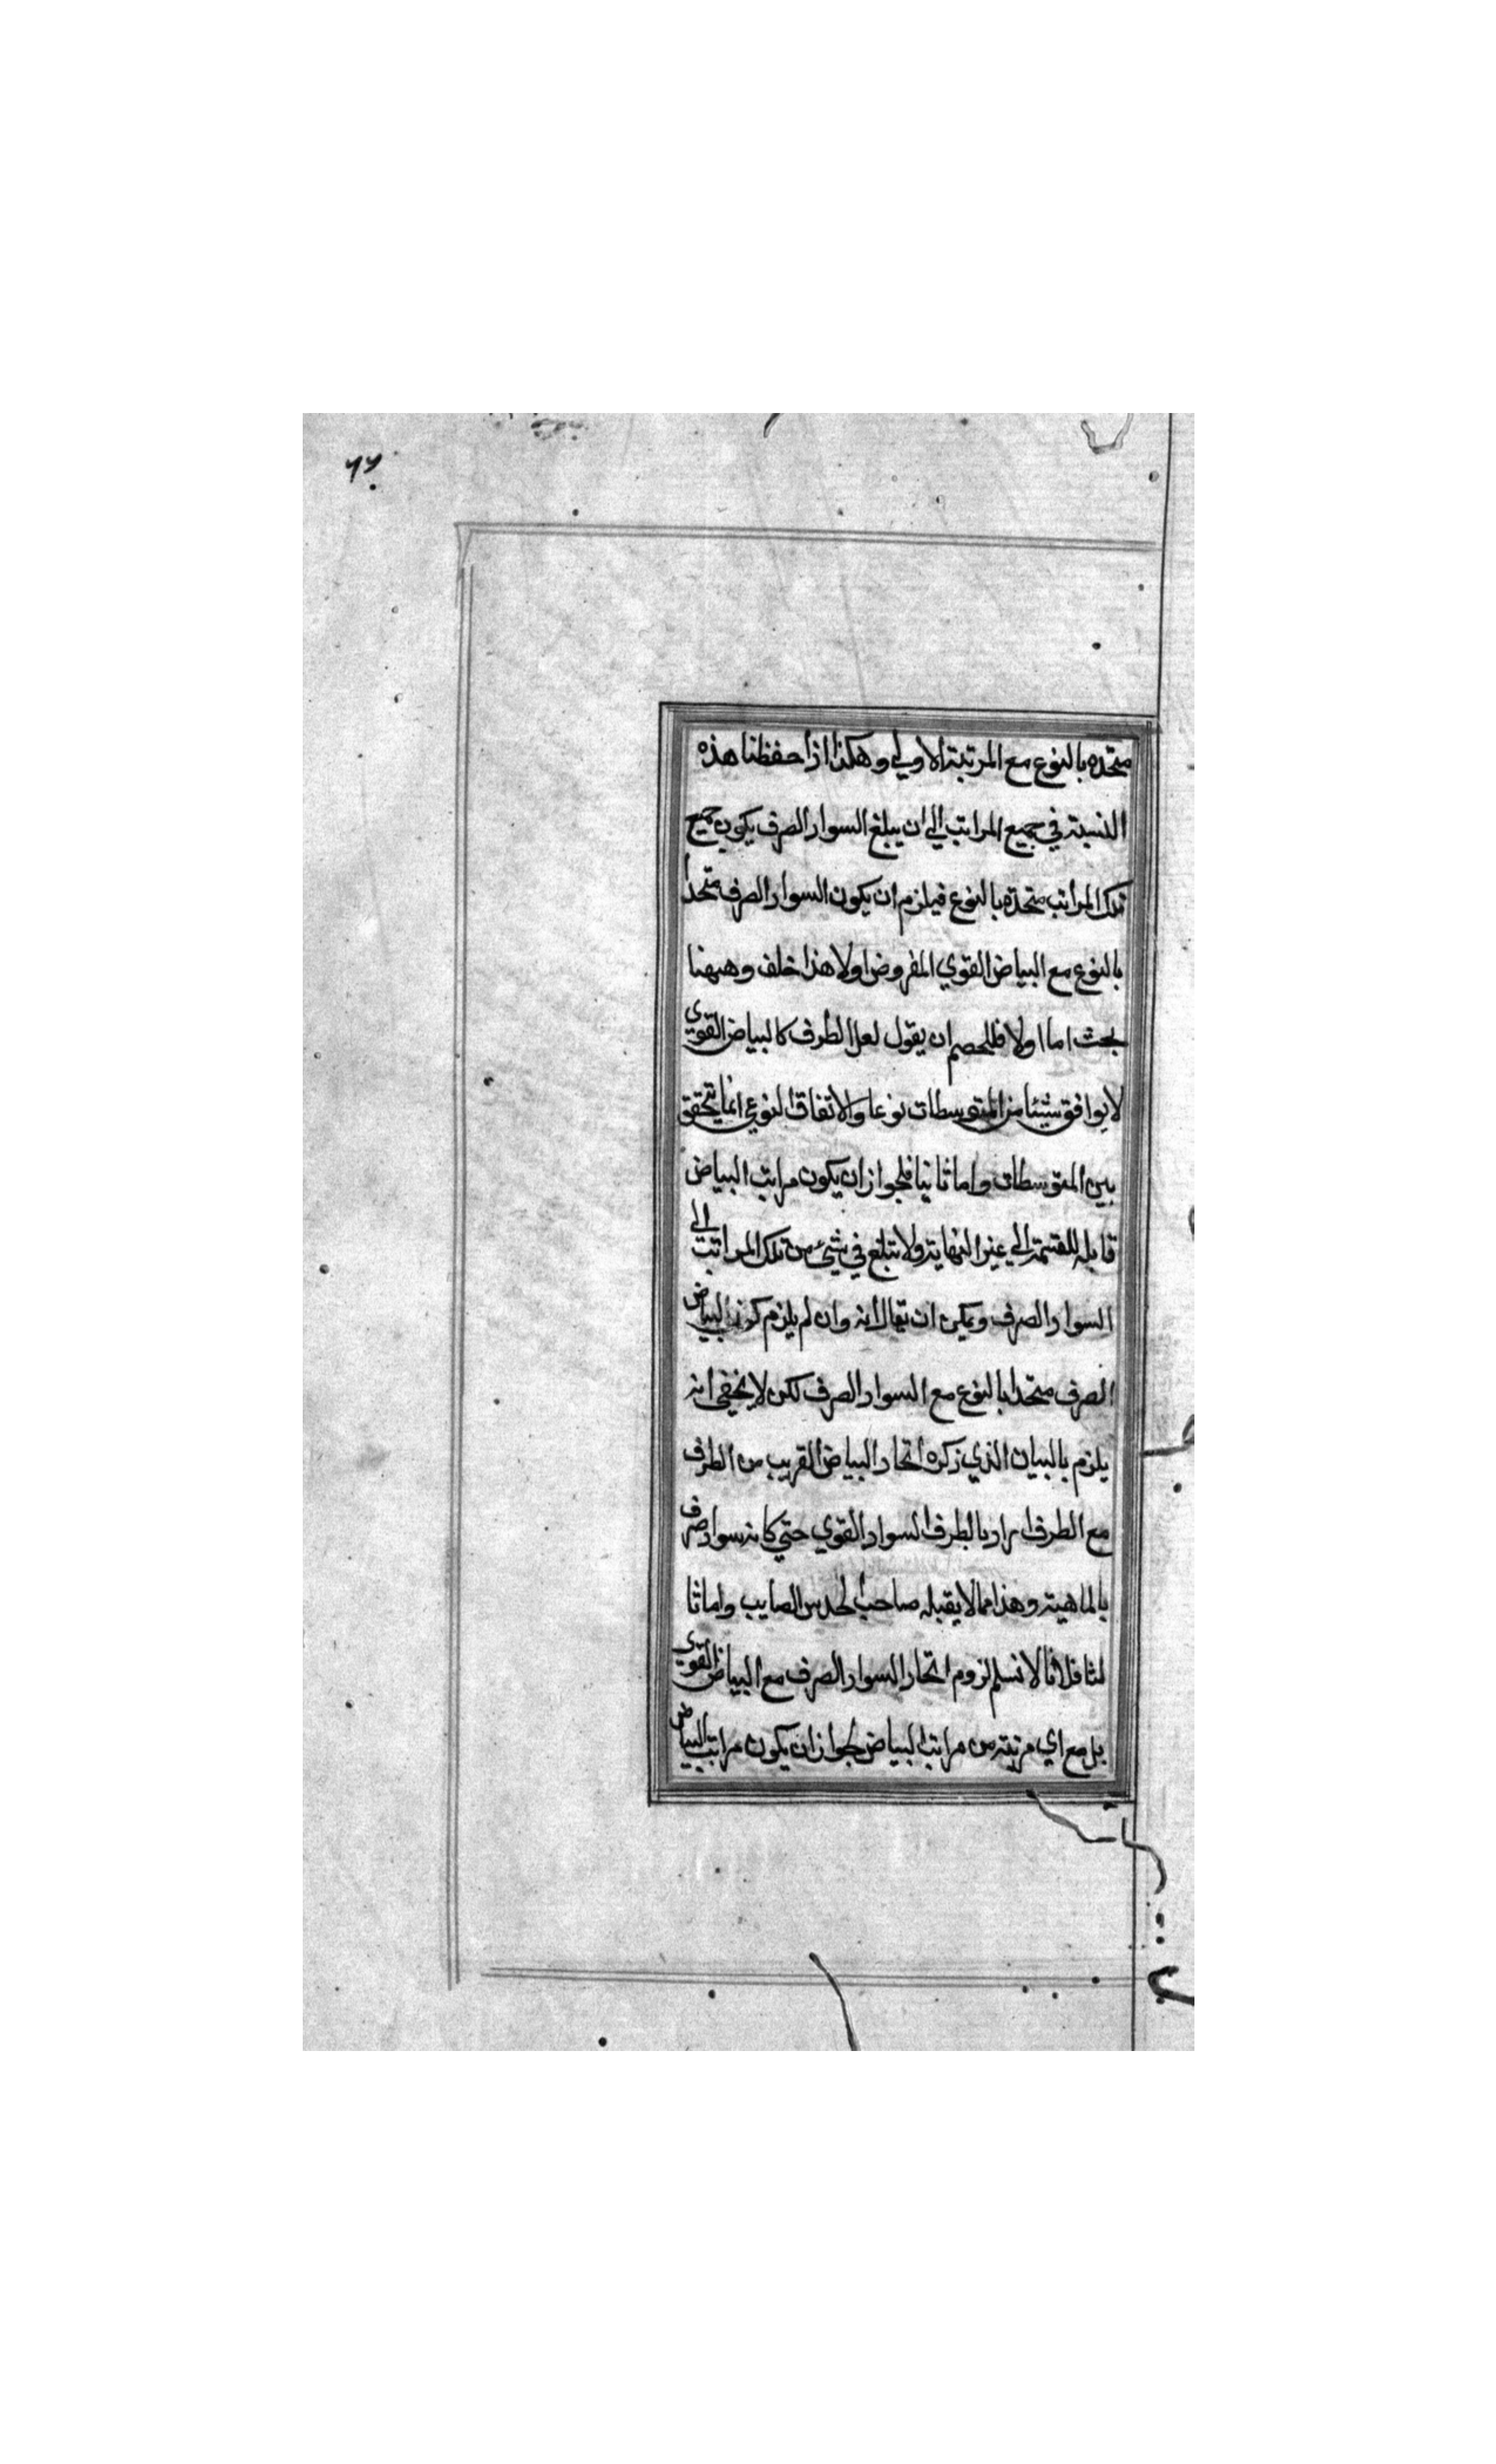 ٦٦
متحده بالنوع مع المرتبة الاولي وهكذا اذا حفظنا هذه
النسبة في جميع المراتب الي ان يبلغ السواد الصرف يكون جميع
تلك المراتب متحدة بالنوع فيلزم ان يكون السواد الصرف متحدا
بالنوع مع البياض القوي المفروض اولا هذا خلف وههنا
بحث اما اولا فللخصم ان يقول لعل الطرف كالبياض القوي
لا يوافق شيئا من المتوسطات نوعا والاتفاق النوعي انما يتحقق
بين المتوسطات واما ثانيا فلجواز ان يكون مراتب البياض
قابلة للقسمة الي غير النهاية ولا تبلغ في شيئ من تلك المراتب الي
السواد الصرف ويمكن ان يقال انه وان لم يلزم كون البياض
الصرف متحدا بالنوع مع السواد الصرف لكن لا يخفي انه
يلزم بالبيان الذي ذكره اتحاد البياض القريب من الطرف
مع الطرف اراد بالطرف السواد القوي حتي كانه سواد صرف
بالماهية وهذا مما لا يقبله صاحب الحدس الصايب واما ثا
لثا فلانا لا نسلم لزوم اتحاد السواد الصرف مع البياض القوي
بل مع اي مرتبة من مراتب البياض لجواز ان يكون مراتب البياض